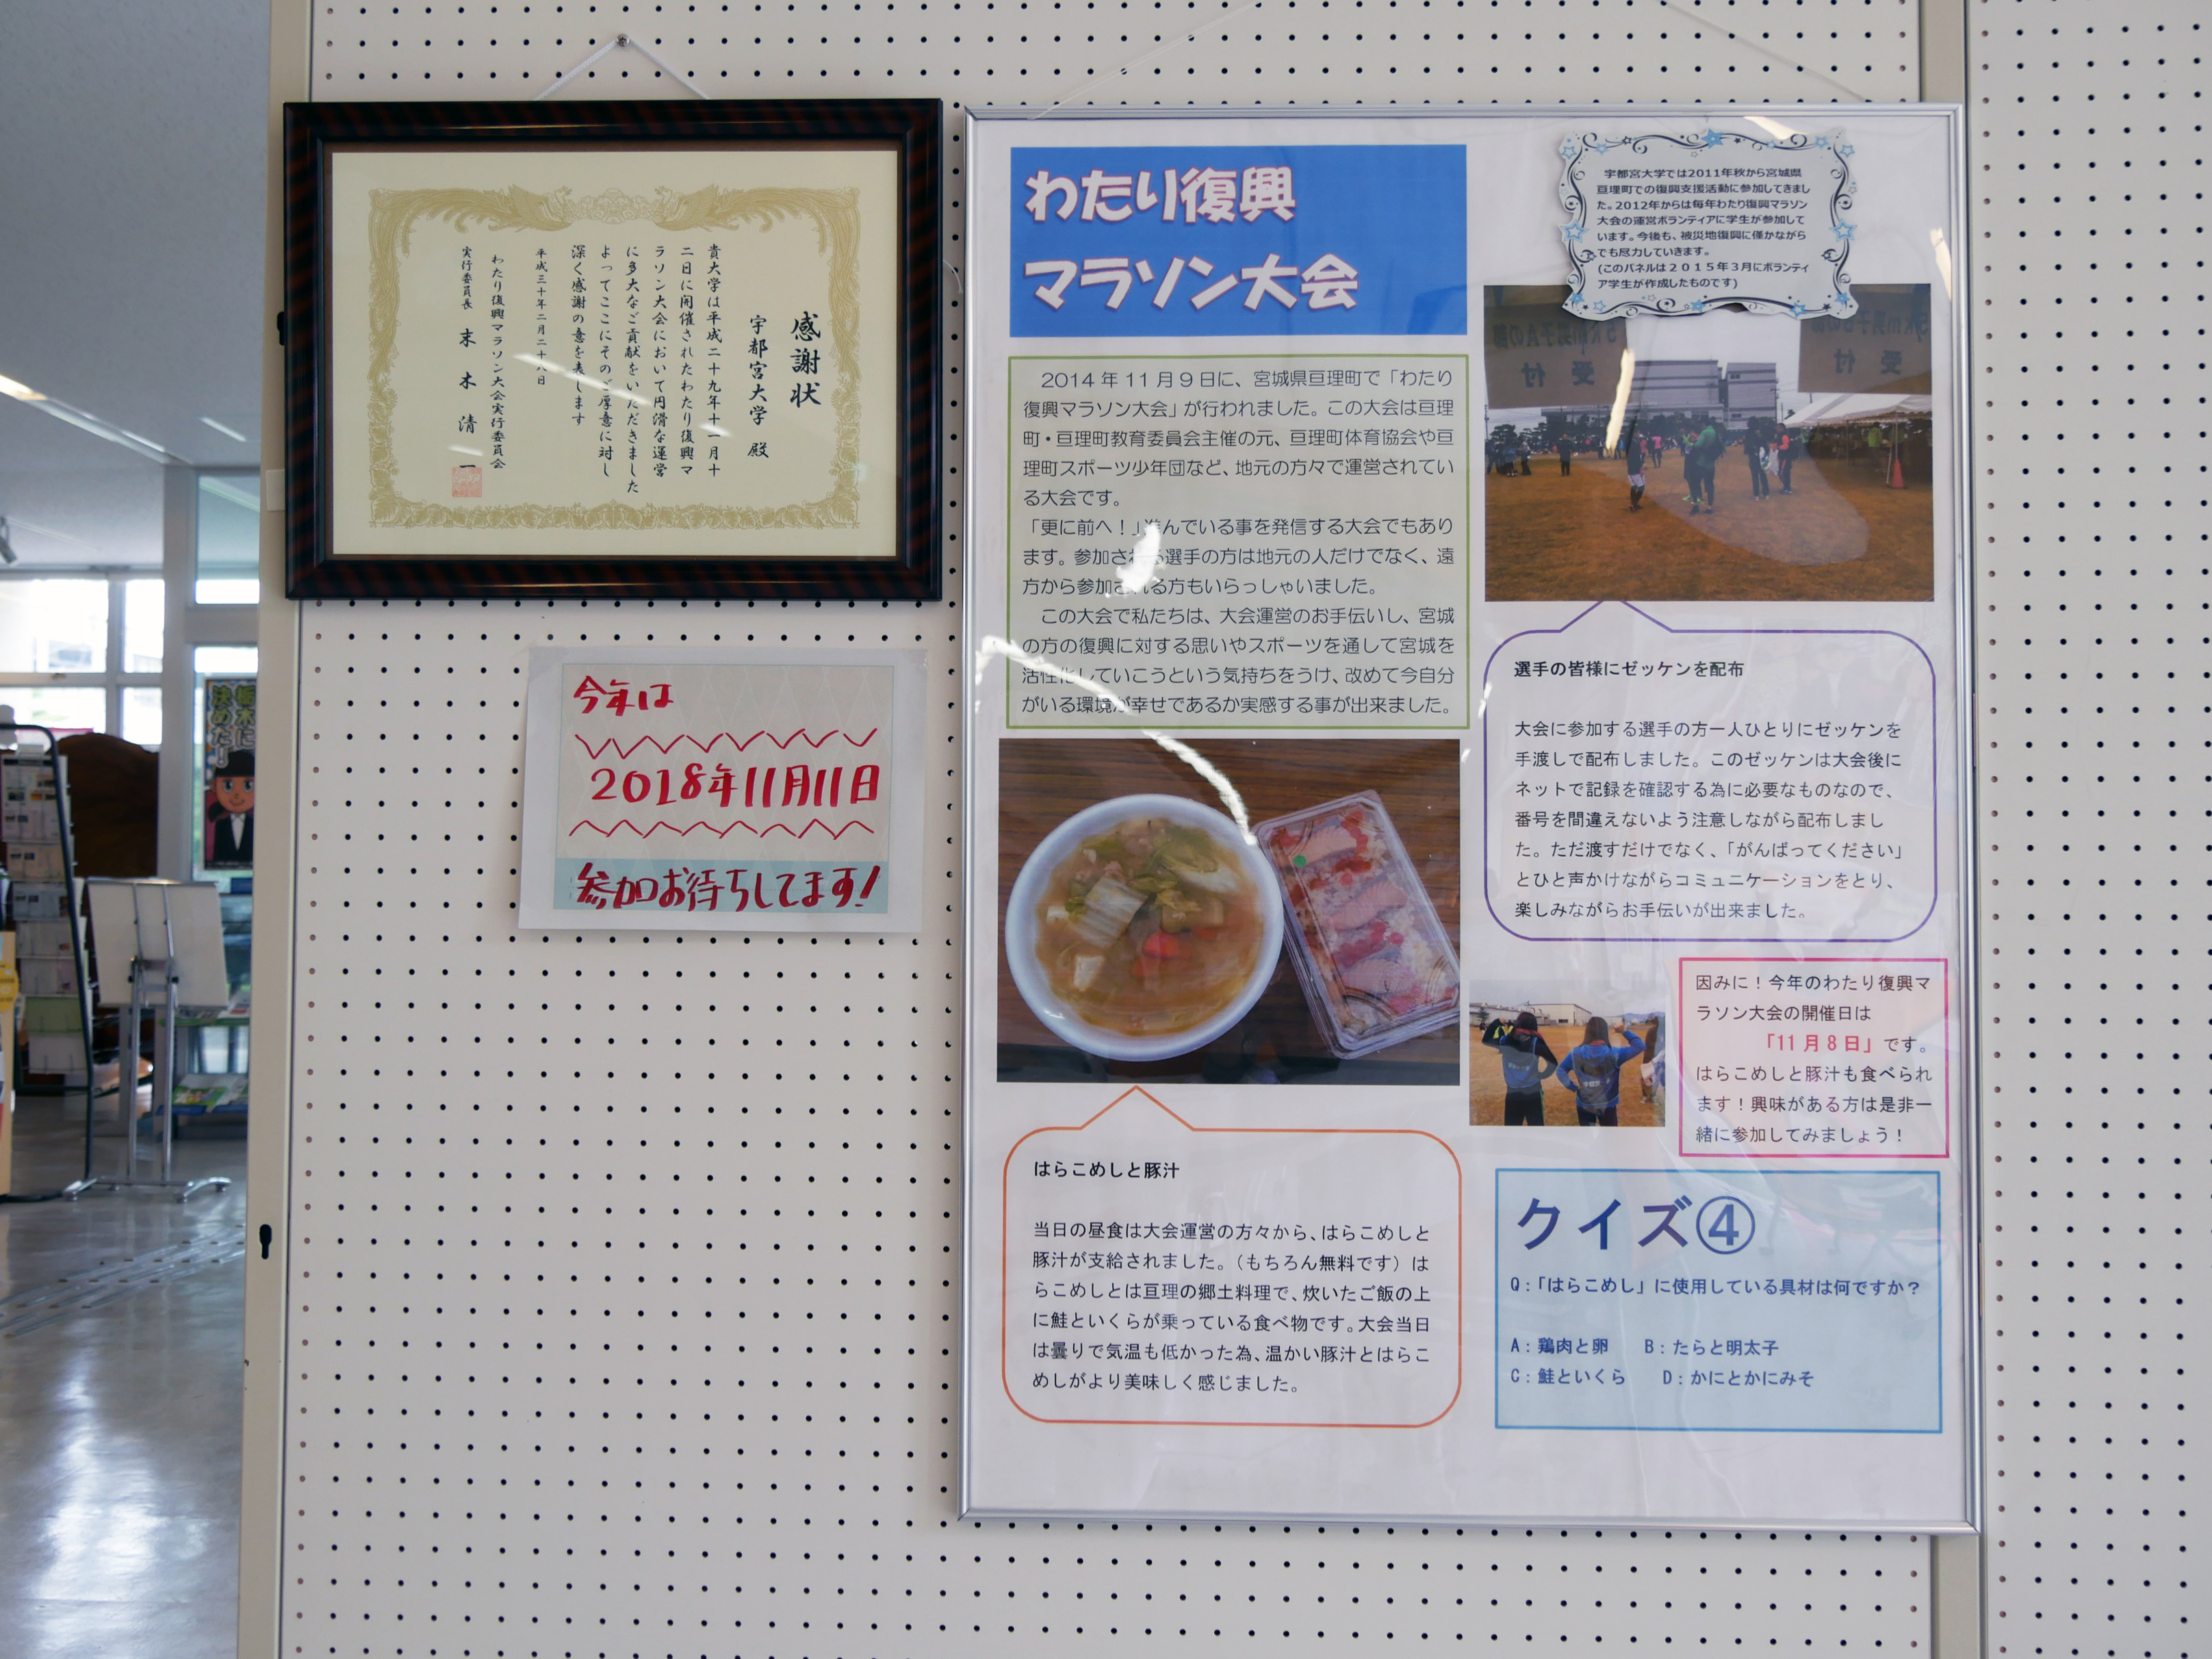 感謝状
宇都宮大学 殿
貴大学は平成二十九年十一月十
二日に開催されたわたり復興マ
ラソン大会において円滑な運営
に多大なご貢献をいただきました
よってここにそのご厚意に対し
深く感謝の意を表します
平成三十年二月二十八日
わたり復興マラソン大会実行委員会
実行委員長 末木清一
今年は
2018年11月11日
参加お待ちしてます!
わたり復興
マラソン大会
2014年11月9日に、宮城県亘理町で「わたり
復興マラソン大会」が行われました。この大会は亘理
町・亘理町教育委員会主催の元、亘理町体育協会や亘
理町スポーツ少年団など、地元の方々で運営されてい
る大会です。
「更に前へ!」進んでいる事を発信する大会でもあり
ます。参加される選手の方は地元の人だけでなく、遠
方から参加される方もいらっしゃいました。
この大会で私たちは、大会運営のお手伝いし、宮城
の方の復興に対する思いやスポーツを通して宮城を
活性化していこうという気持ちをうけ、改めて今自分
がいる環境が幸せであるか実感する事が出来ました。
はらこめしと豚汁
当日の昼食は大会運営の方々から、はらこめしと
豚汁が支給されました。(もちろん無料です)は
らこめしとは亘理の郷土料理で、炊いたご飯の上
に鮭といくらが乗っている食べ物です。大会当日
は曇りで気温も低かった為、温かい豚汁とはらこ
めしがより美味しく感じました。
宇都宮大学では2011年秋から宮城県
亘理町での復興支援活動に参加してきまし
た。2012年からは毎年わたり復興マラソン
大会の運営ボランティアに学生が参加して
います。今後も、被災地復興に僅かながら
でも尽力していきます。
(このパネルは2015年3月にボランティ
ア学生が作成したものです)
5km男子Aの部
受付
受付
選手の皆様にゼッケンを配布
大会に参加する選手の方一人ひとりにゼッケンを
手渡しで配布しました。このゼッケンは大会後に
ネットで記録を確認する為に必要なものなので、
番号を間違えないよう注意しながら配布しまし
た。ただ渡すだけでなく、「がんばってください」
とひと声かけながらコミュニケーションをとり、
楽しみながらお手伝いが出来ました。
因みに!今年のわたり復興マ
ラソン大会の開催日は
「11月8日」です。
はらこめしと豚汁も食べられ
ます!興味がある方は是非一
緒に参加してみましょう!
クイズ④
Q:「はらこめし」に使用している具材は何ですか?
A:鶏肉と卵 B:たらと明太子
C:鮭といくら D:かにとかにみそ
栃木に
決めた!